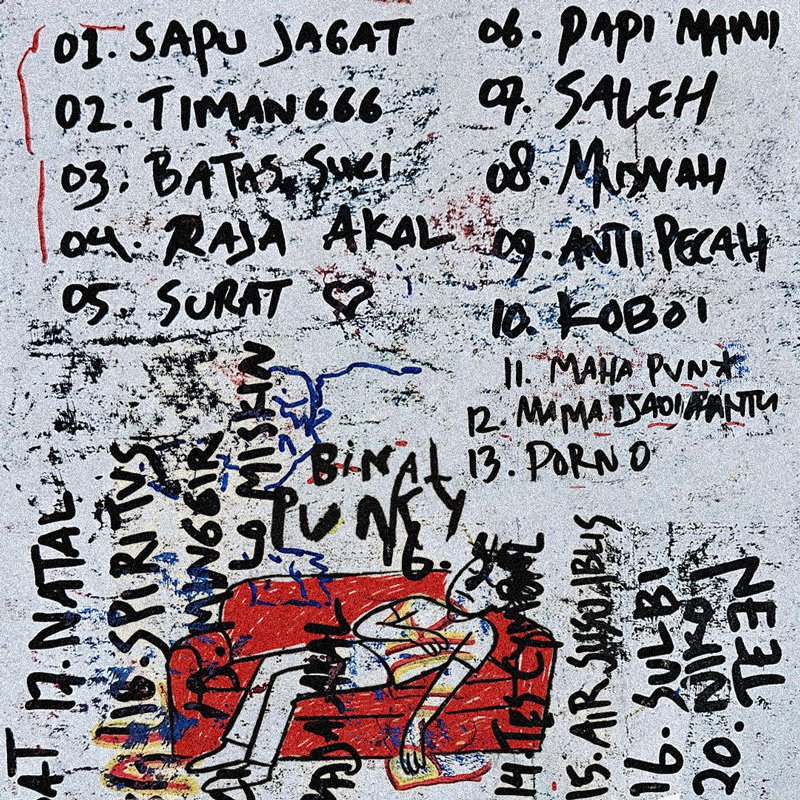 01. SAPU JAGAT
02. TIMAN666
03. BATAS SUCI
04. RAJA AKAL
05. SURAT
06. PAPI MAMI
07. SALEH
08. MUSNAH
09. ANTI PECAH
10. KOBOI
11. MAHA PUNK
12. MAMA JADI HANTU
13. PORNO
BINAL
PUNKY
17. NATAL
16. SPIRITUS
MINGGIR
19 MISKIN
15. AIR SUSU IBLIS
16. SULBI
20. NIKO
TEEN